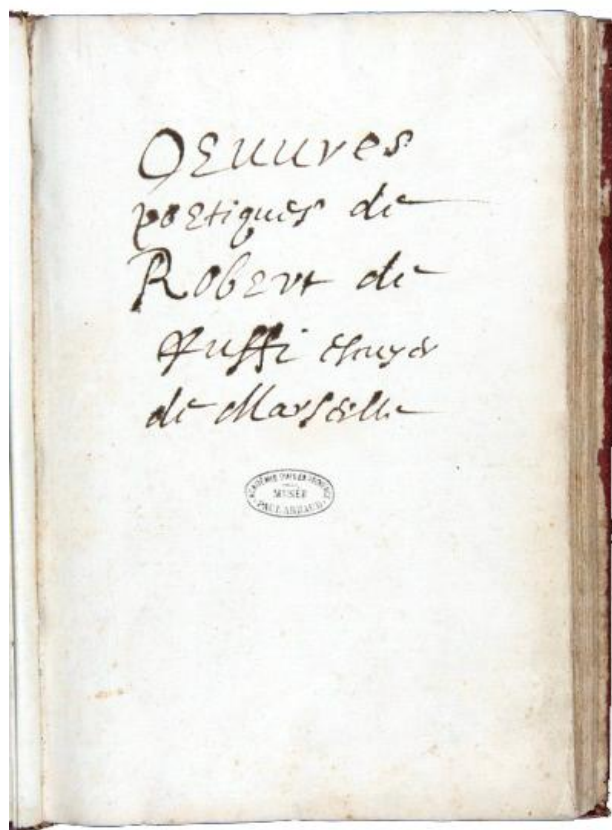 Oeuures
poetiques de
Robert de
Ruffi escuyer
de Marseille
ACADÉMIE D'AIX EN PROVENCE
MUSÉE
PAUL ARBAUD